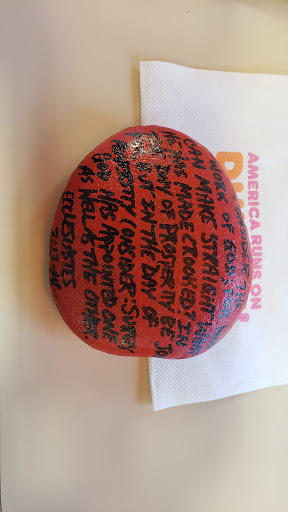 WORK OF GOD
CAN MAKE STRAIGHT WHAT
HE HAS MADE CROOKED? IN
THE DAY OF PROSPERITY BE JO
BUT IN THE DAY OF
ADVERSITY CONSIDER: SURELY
GOD HAS APPOINTED ONE
AS WELL AS THE OTHER.
ECCLESIASTES
7:13-14
AMERICA RUNS ON
DU